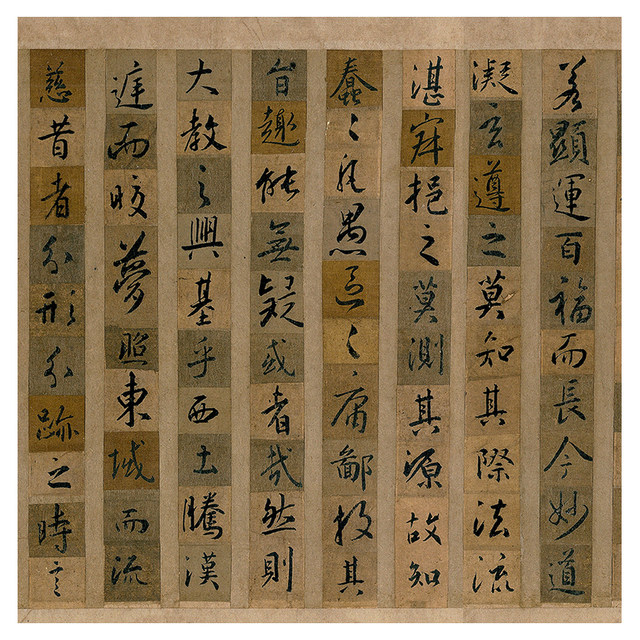 若顯運百福而長今妙道
凝玄遵之莫知其際法流
湛寂挹之莫測其源故知
蠢々凡愚區々庸鄙投其
旨趣能無疑或者哉然則
大教之興基乎西土騰漢
庭而皎夢照東域而流
慈昔者分形分跡之時言